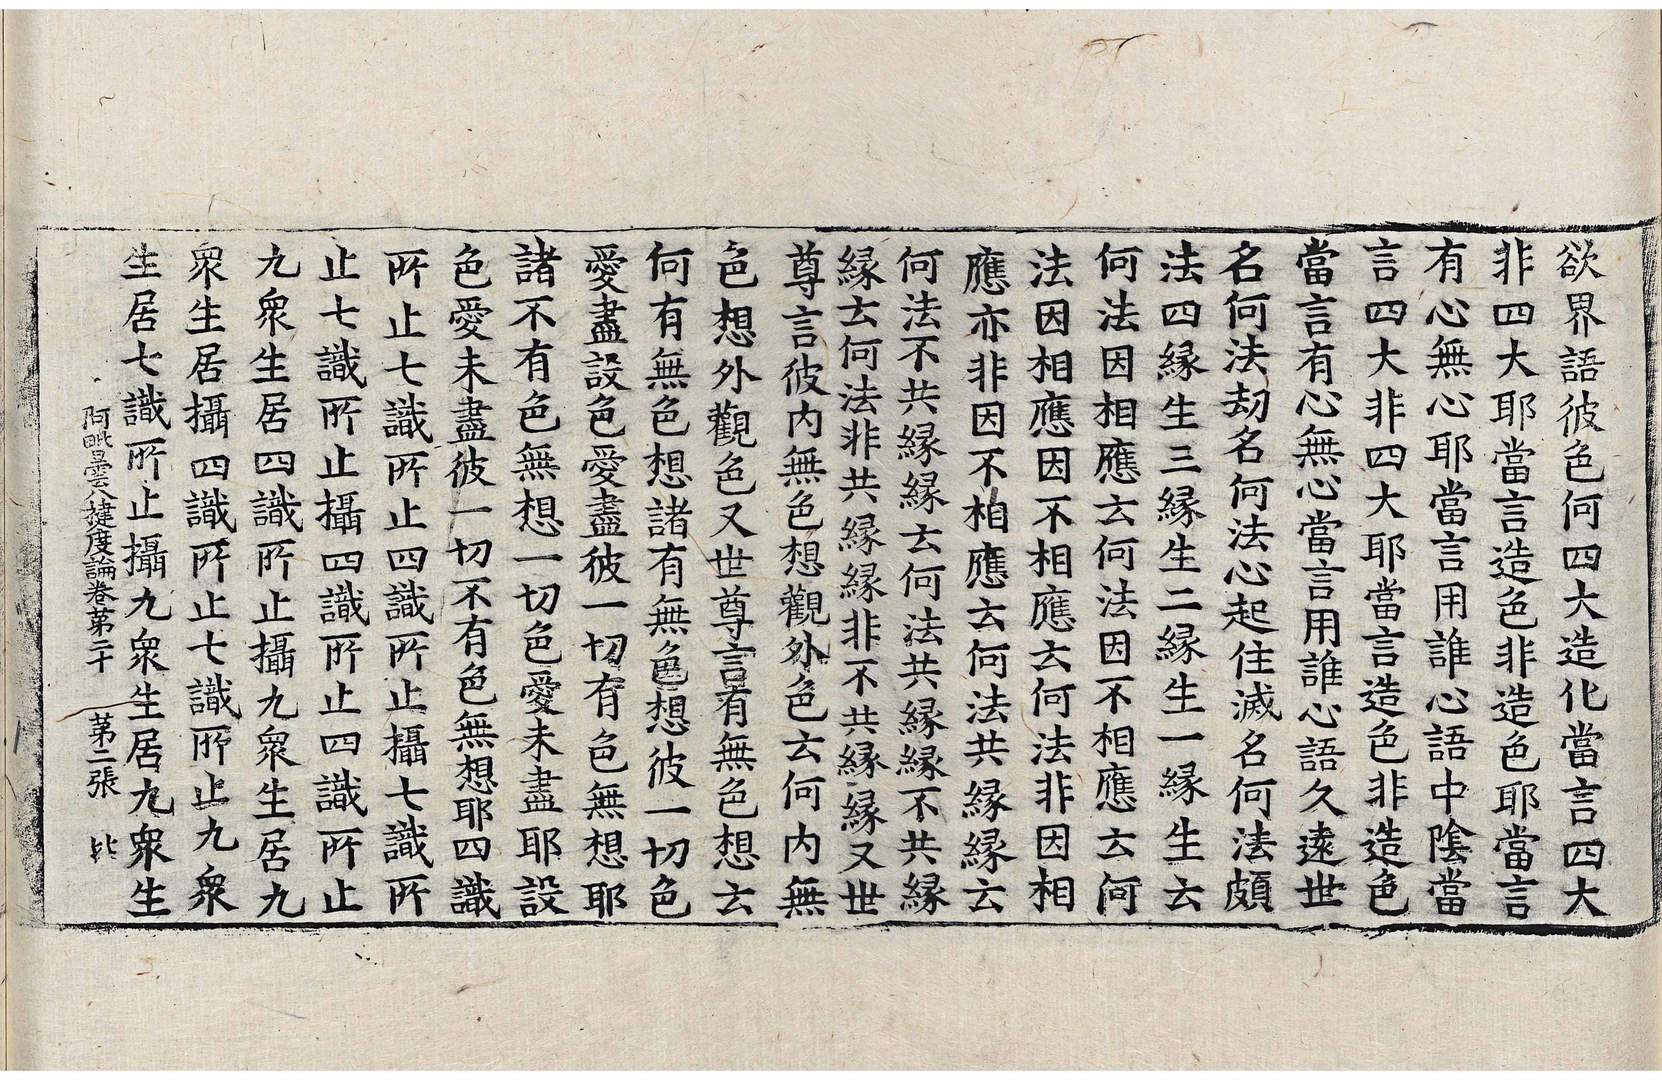 欲界語彼色何四大造化當言四大
非四大耶當言造色非造色耶當言
有心無心耶當言用誰心語中陰當
言四大非四大耶當言造色非造色
當言有心無心當言用誰心語久遠世
名何法劫名何法心起住滅名何法頗
法四縁生三縁生二縁生一縁生云
何法因相應云何法因不相應云何
法因相應因不相應云何法非因相
應亦非因不相應云何法共縁縁云
何法不共縁縁云何法共縁縁不共縁
縁云何法非共縁縁非不共縁縁又世
尊言彼內無色想觀外色云何內無
色想外觀色又世尊言有無色想云
何有無色想諸有無色想彼一切色
愛盡設色愛盡彼一切有色無想耶
諸不有色無想一切色愛未盡耶設
色愛未盡彼一切不有色無想耶四識
所止七識所止四識所止攝七識所
止七識所止攝四識所止四識所止
九衆生居四識所止攝九衆生居九
衆生居攝四識所止七識所止九衆
生居七識所止攝九衆生居九衆生
阿毗曇八揵度論卷第二十 第二張